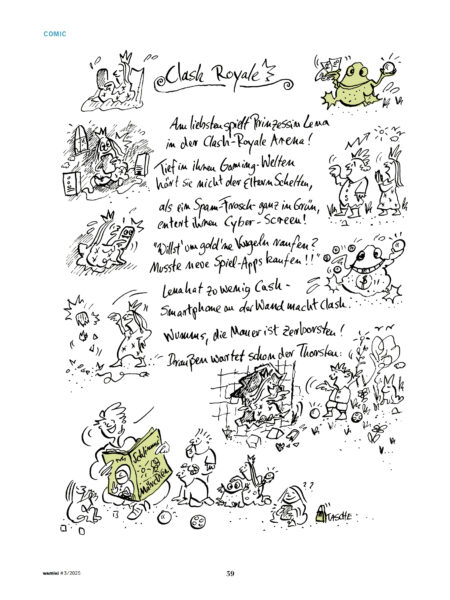 COMIC
Clash Royale
Am liebsten spielt Prinzessin Lena
in der Clash-Royale Arena!
Tief in ihren Gaming-Welten
hört sie nicht der Eltern Schelten,
als ein Spam-Frosch ganz in Grün,
entert ihren Cyber-Screen!
"Willst um gold'ne Kugeln raufen?
Musste neue Spiel-Apps kaufen!!"
Lena hat zu wenig Cash -
Smartphone an der Wand macht Clash.
Wumms, die Mauer ist zerborsten!
Draußen wartet schon der Thorsten:
$
??
TASCHE
wamiki #3/2025
59